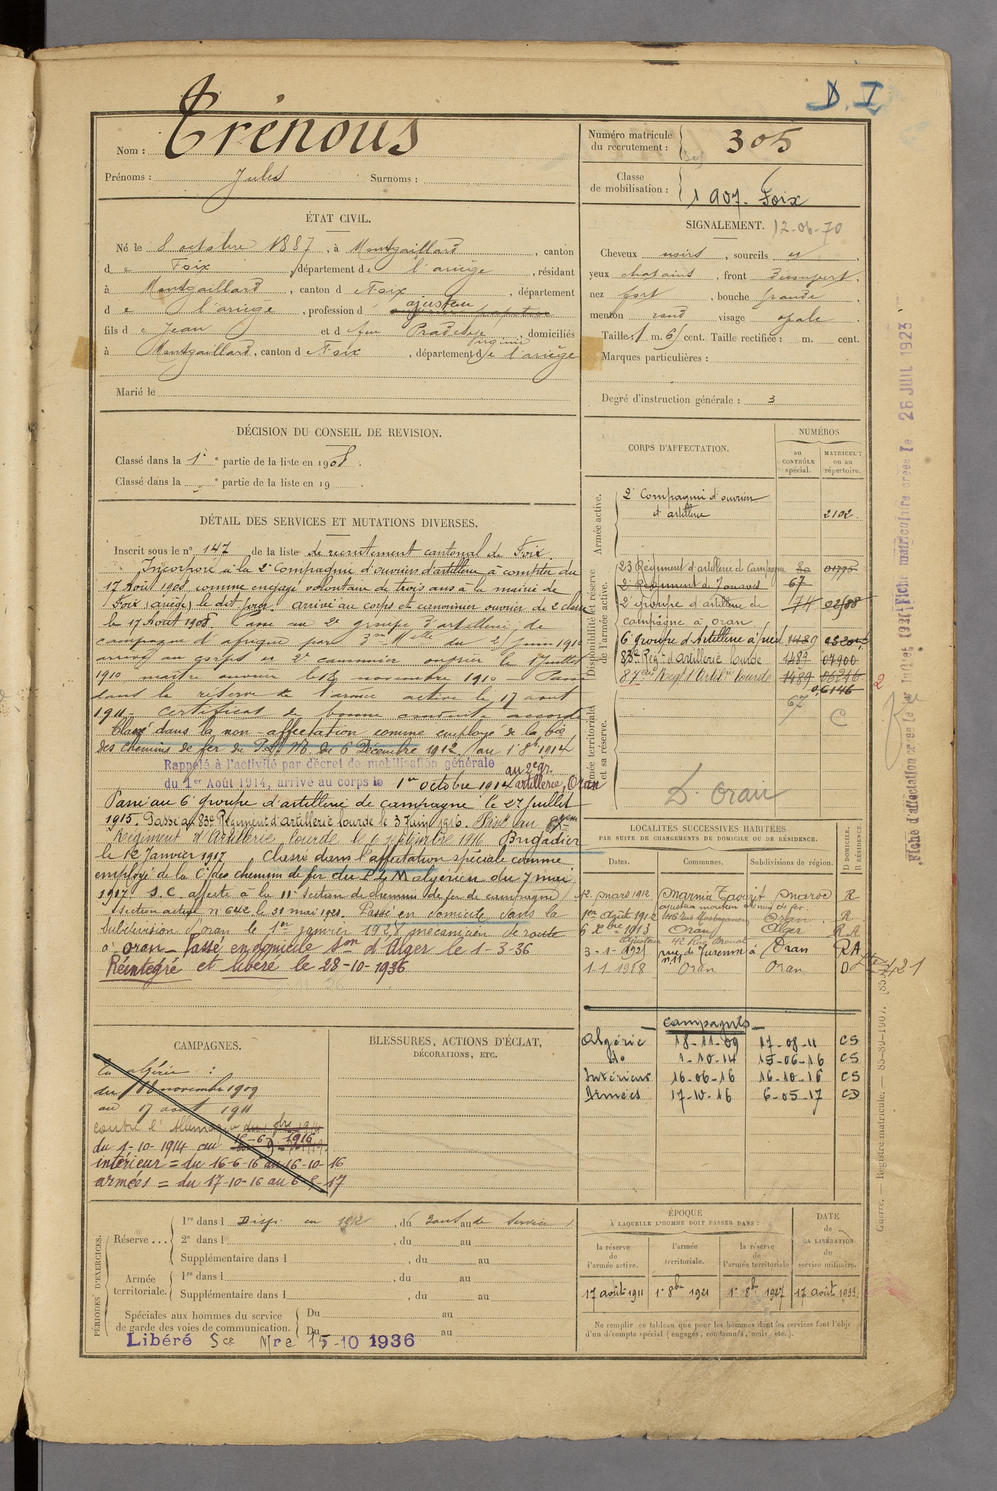 D. I
Nom : Trénous
Prénoms : Jules Surnoms :
Numéro matricule du recrutement : 305
Classe de mobilisation : 1907. Foix
ÉTAT CIVIL.
Né le 8 octobre 1887, à Montgaillard, canton
d e Foix, département de l'ariège, résidant
à Montgaillard, canton d Foix, département
d e l'ariège, profession d ajusteur
fils d e Jean et d feu Pradelle Virginie, domiciliés
à Montgaillard, canton d Foix, département de l'ariège
Marié le
SIGNALEMENT. 12-06-70
Cheveux noirs, sourcils
yeux chatains, front
nez fort, bouche grande
menton rond visage ovale
Taille : 1 m. 61 cent. Taille rectifiée : m. cent.
Marques particulières :
Degré d'instruction générale : 3
DÉCISION DU CONSEIL DE REVISION.
Classé dans la 1e partie de la liste en 1908.
Classé dans la e partie de la liste en 19
DÉTAIL DES SERVICES ET MUTATIONS DIVERSES.
Inscrit sous le n° 147 de la liste de recrutement cantonal de Foix.
Incorporé à la 2e Compagnie d'ouvriers d'artillerie à compter du
17 Août 1908 comme engagé volontaire de trois ans à la mairie de
Foix (Ariège) le dit jour. arrivé au corps et canonnier ouvrier de 2e classe
le 17 Août 1908. Passé au 2e groupe d'artillerie de
campagne d'afrique du 2 juin 1910
arrivé au corps et 2e canonnier ouvrier le 1 juillet
1910 maître ouvrier le 18 novembre 1910 - Passé
dans la réserve de l'armée active le 17 aout
1911 - certificat de bonne conduite accordé
Classé dans la non-affectation comme employé de la Cie
des chemins de fer du P.L.M. du 6 Décembre 1912 au 1 8bre 1914
Rappelé à l'activité par décret de mobilisation générale
du 1er Août 1914, arrivé au corps le 1er octobre 1914 au 2e gr. artillerie, Oran
Passé au 6e groupe d'artillerie de campagne le 27 juillet
1915. Passé au 83e Régiment d'artillerie lourde le 3 Juin 1916. Passé au 87em
Régiment d'Artillerie lourde le 1 septembre 1916. Brigadier
le 12 Janvier 1917 Classé dans l'affectation spéciale comme
employé de la Cie des chemins de fer du P.L.M algérien du 7 mai
1917. S.C. affecté à la 11e section de chemins de fer de campagne
section active n° 642 le 31 mai 1921. Passé en domicile dans la
Subdivision d'oran le 1er janvier 1928 mécanicien de route
à Oran - Passé en domicile Son d'Alger le 1-3-36
Réintégré et libéré le 28-10-1936
CORPS D'AFFECTATION.
NUMÉROS
au CONTRÔLE spécial.
MATRICULE ou au répertoire.
Armée active.
2e Compagnie d'ouvriers
d'artillerie 2102
Disponibilité et réserve de l'armée active.
23 Régiment d'artillerie de Campagne
2e Régiment de Zouaves 67
2e groupe d'artillerie de 74
campagne à oran
6e groupe d'Artillerie à pied 1489
83e Reg. d'artillerie lourde 1489 04900
87eme Regt d'Artillie lourde 1489 06246
06146
67
C
Armée territoriale et sa réserve.
D. Oran
LOCALITÉS SUCCESSIVES HABITÉES
PAR SUITE DE CHANGEMENTS DE DOMICILE OU DE RÉSIDENCE.
Dates. Communes. Subdivisions de région. D DOMICILE. R RÉSIDENCE.
12 mars 1912 Marnia Taourirt Maroc R
1er Août 1912 Oran R
6 Xbre 1913 Oran Alger R.A
3-1-1921 rue de Turenne à Oran R.A
1-1-1928 Oran Oran D
421
Campagnes
Algérie 18-11-09 17-08-11 CS
do 1-10-14 15-06-16 CS
Intérieur 16-06-16 16-10-16 CS
Armées 17-10-16 6-05-17 CD
CAMPAGNES.
En algérie :
du 18 novembre 1909
au 17 août 1911
contre l'Allemagne
du 1-10-1914 au 15-6-1916
intérieur = du 16-6-16 au 16-10-16
armées = du 17-10-16 au 6-5-17
BLESSURES, ACTIONS D'ÉCLAT,
DÉCORATIONS, ETC.
PÉRIODES D'EXERCICES.
Réserve... 1re dans l Disp. en 1912, du au
2e dans l , du au
Supplémentaire dans l , du au
Armée territoriale. 1re dans l , du au
Supplémentaire dans l , du au
Spéciales aux hommes du service
de garde des voies de communication. Du au
Du au
Libéré Sce Mre 15-10 1936
ÉPOQUE
À LAQUELLE L'HOMME DOIT PASSER DANS :
DATE de LA LIBÉRATION du service militaire.
la réserve de l'armée active. l'armée territoriale. la réserve de l'armée territoriale
17 août 1911 1er 8bre 1921 1er 8bre 1927 17 août 1933
Ne remplir ce tableau que pour les hommes dont les services font l'objet
d'un décompte spécial (engagés, condamnés, omis, etc.).
Guerre. — Registre matricule. — 85-89-1907.
Fiche matriculaire créée le 26 JUIL 1923
Fiche d'affectation créée le